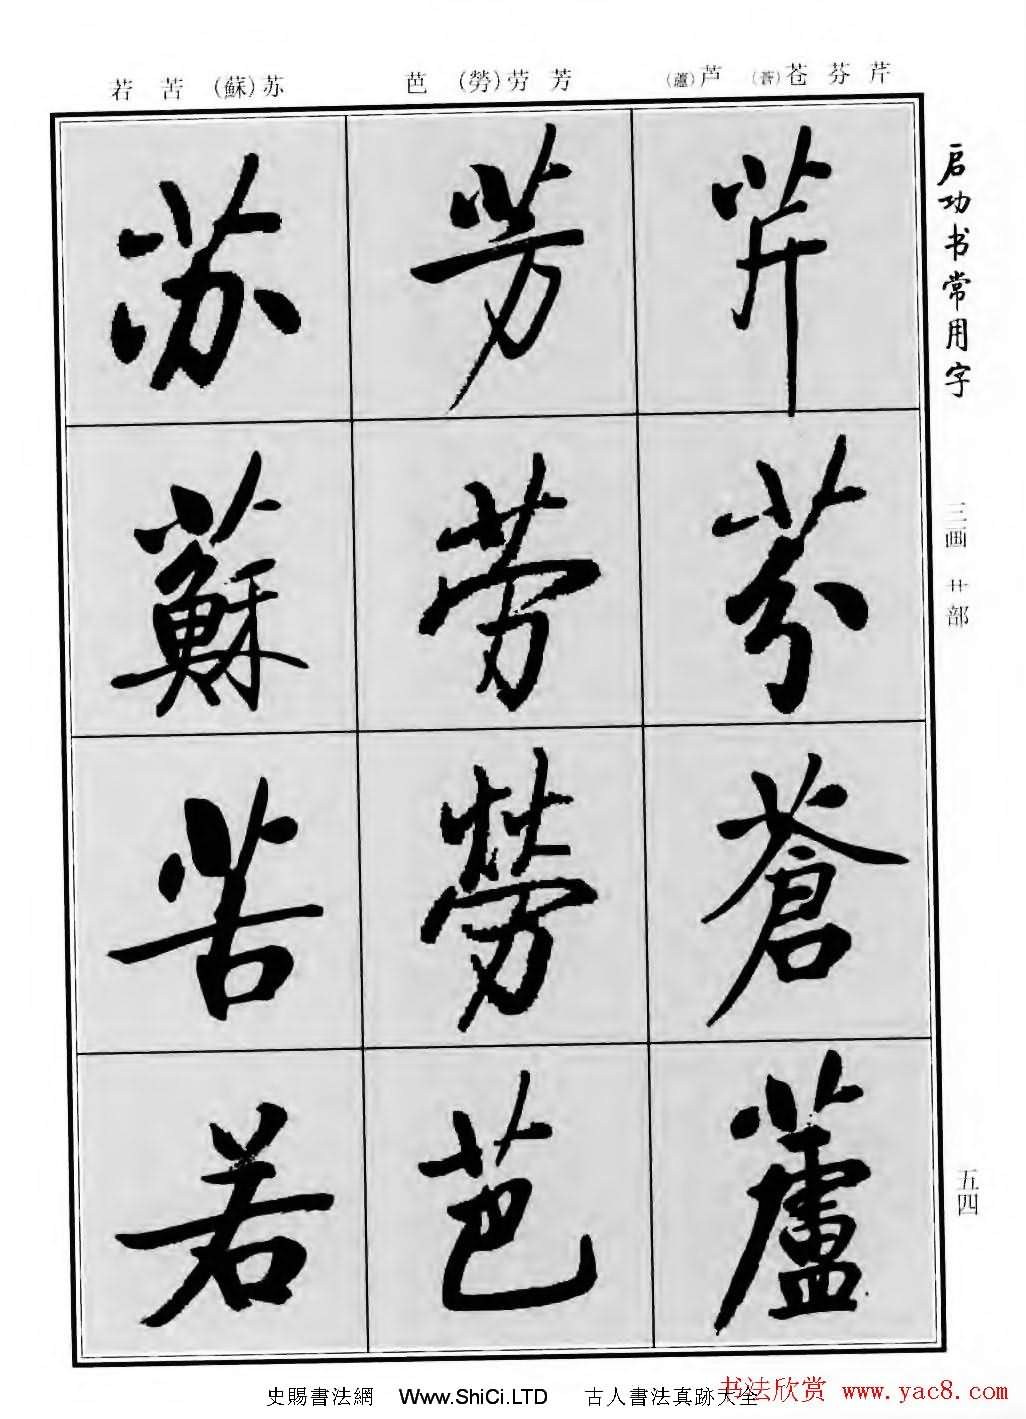 芹芬苍(蒼)芦(蘆)
芳劳(勞)芭
苏(蘇)苦若
启功书常用字
三画 艹部
五四
芹
芬
蒼
蘆
芳
劳
勞
芭
苏
蘇
苦
若
史賜書法網 Www.ShiCi.LTD 古人書法真跡大全
书法欣赏 www.yac8.com